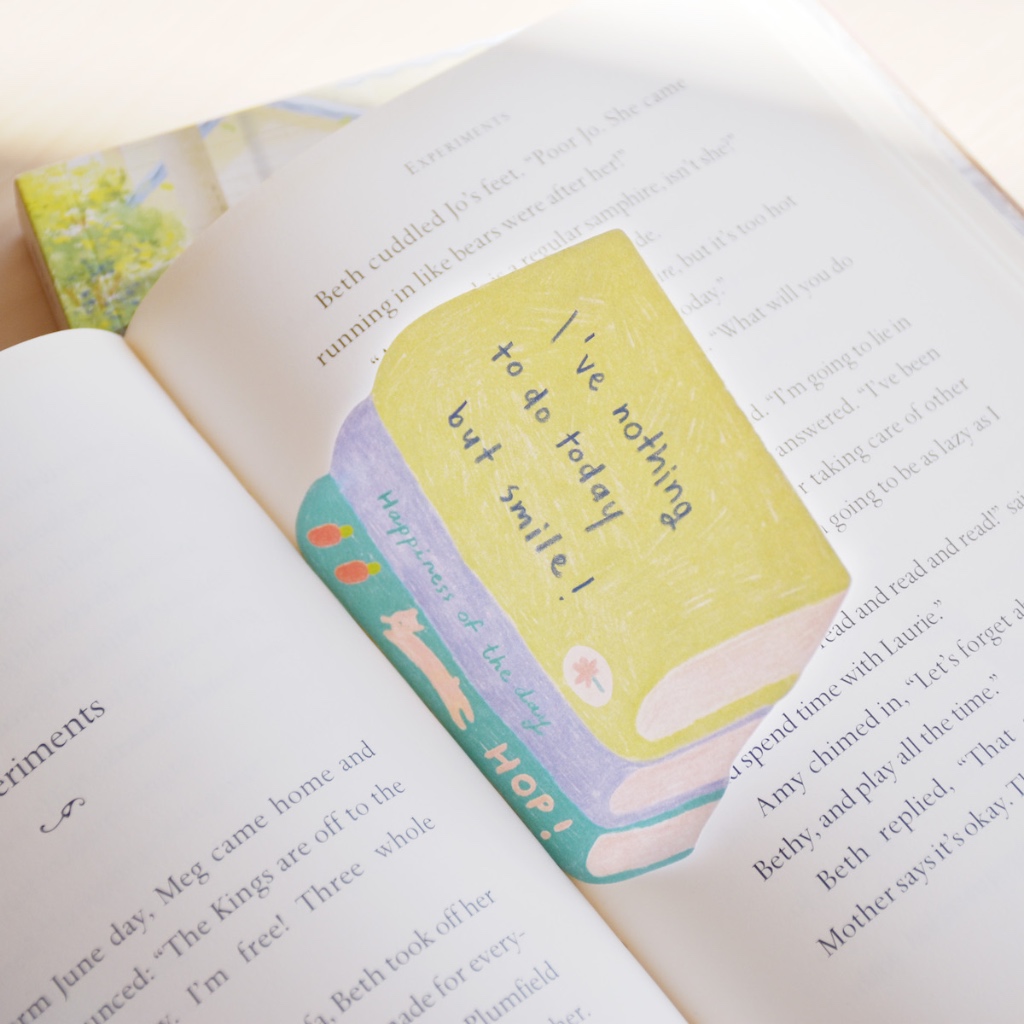 eriments
rm June day, Meg came home and
unced: "The Kings are off to the
y. I'm free! Three whole
fa, Beth took off her
nade for every-
Plumfield
her.
EXPERIMENTS
Beth cuddled Jo's feet. "Poor Jo. She came
running in like bears were after her!"
is a regular samphire, isn't she?"
de.
ire, but it's too hot
oday."
"What will you do
d. "I'm going to lie in
answered. "I've been
r taking care of other
going to be as lazy as I
read and read and read!" sai
d spend time with Laurie."
Amy chimed in, "Let's forget a
Bethy, and play all the time."
Beth replied, "That
Mother says it's okay. T
I've nothing
to do today
but smile!
Happiness of the day
HOP!